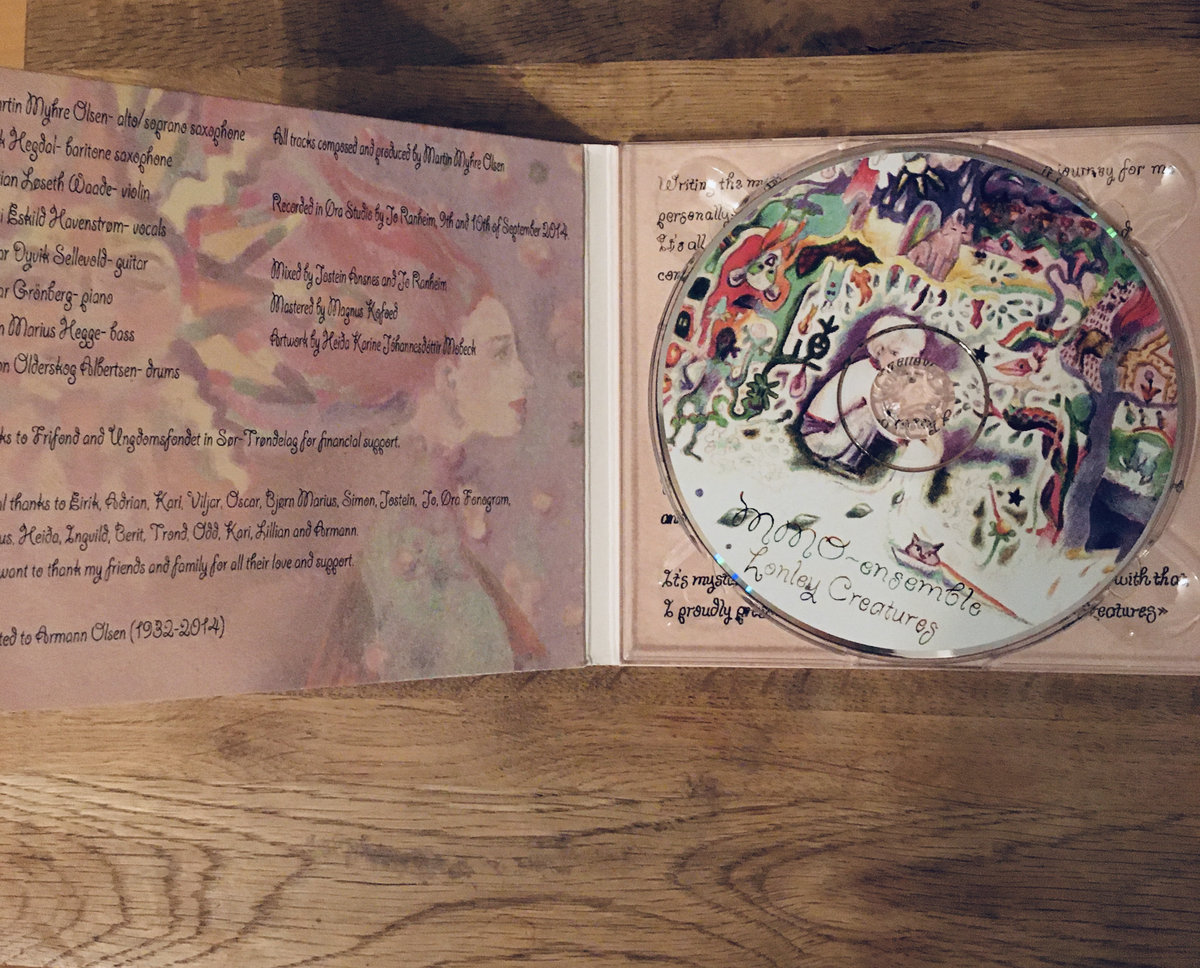 rtin Myhre Olsen- alto/soprano saxophone
k Hegdal- baritone saxophone
ian Løseth Waade- violin
i Eskild Havenstrøm- vocals
ar Dyvik Sellevold- guitar
ar Grönberg- piano
n Marius Hegge- bass
on Olderskog Albertsen- drums
ks to Frifond and Ungdomsfondet in Sør-Trøndelag for financial support.
al thanks to Eirik, Adrian, Kari, Viljar, Oscar, Bjørn Marius, Simon, Jostein, Jo, Øra Fonogram,
us, Heida, Ingvild, Berit, Trond, Odd, Kari, Lillian and Armann.
want to thank my friends and family for all their love and support.
ted to Armann Olsen (1932-2014)
All tracks composed and produced by Martin Myhre Olsen
Recorded in Øra Studio by Jo Ranheim, 9th and 10th of September 2014.
Mixed by Jostein Ansnes and Jo Ranheim
Mastered by Magnus Kofoed
Artwork by Heida Karine Jóhannesdóttir Mobeck
Writing the m journey for me
personally
It's all
con
an
It's myst with that
I proudly pres creatures»
MMO-ensemble
Lonley Creatures